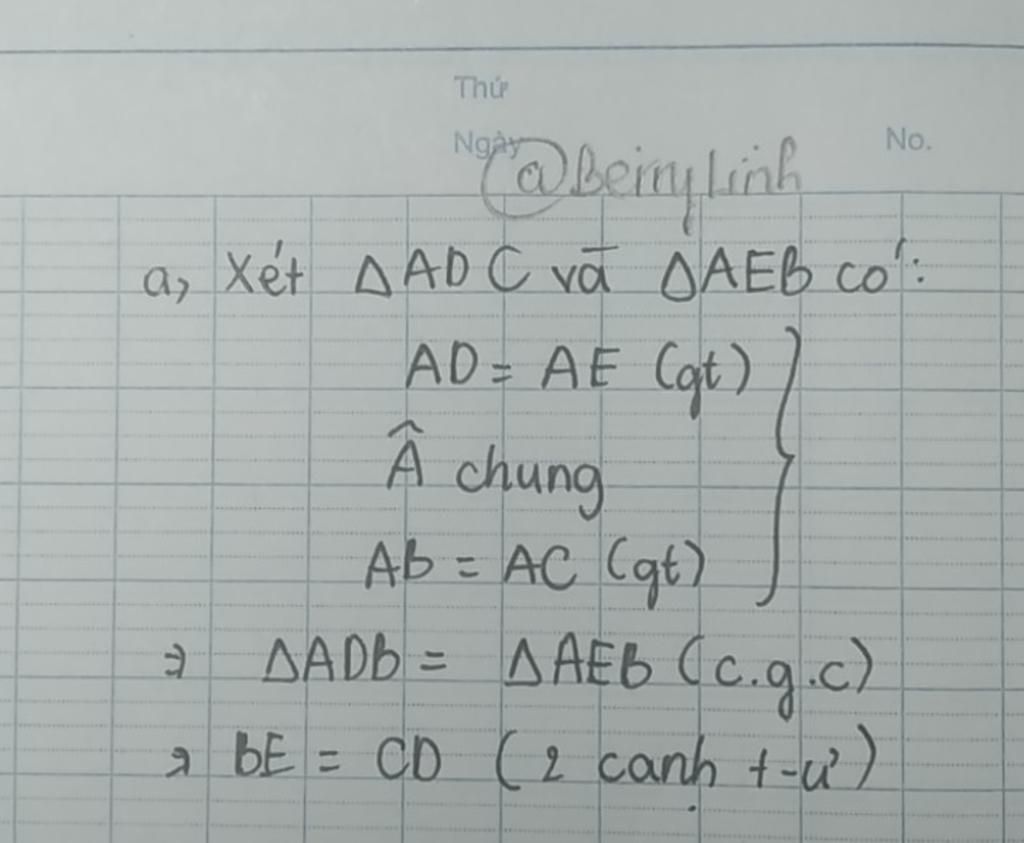 Thứ
Ngày
No.
@Beiny Linh
a, Xét ΔADC và ΔAEB có:
AD = AE (gt)
Â chung
AB = AC (gt)
⇒ ΔADB = ΔAEB (c.g.c)
⇒ BE = CD (2 cạnh t-ư)